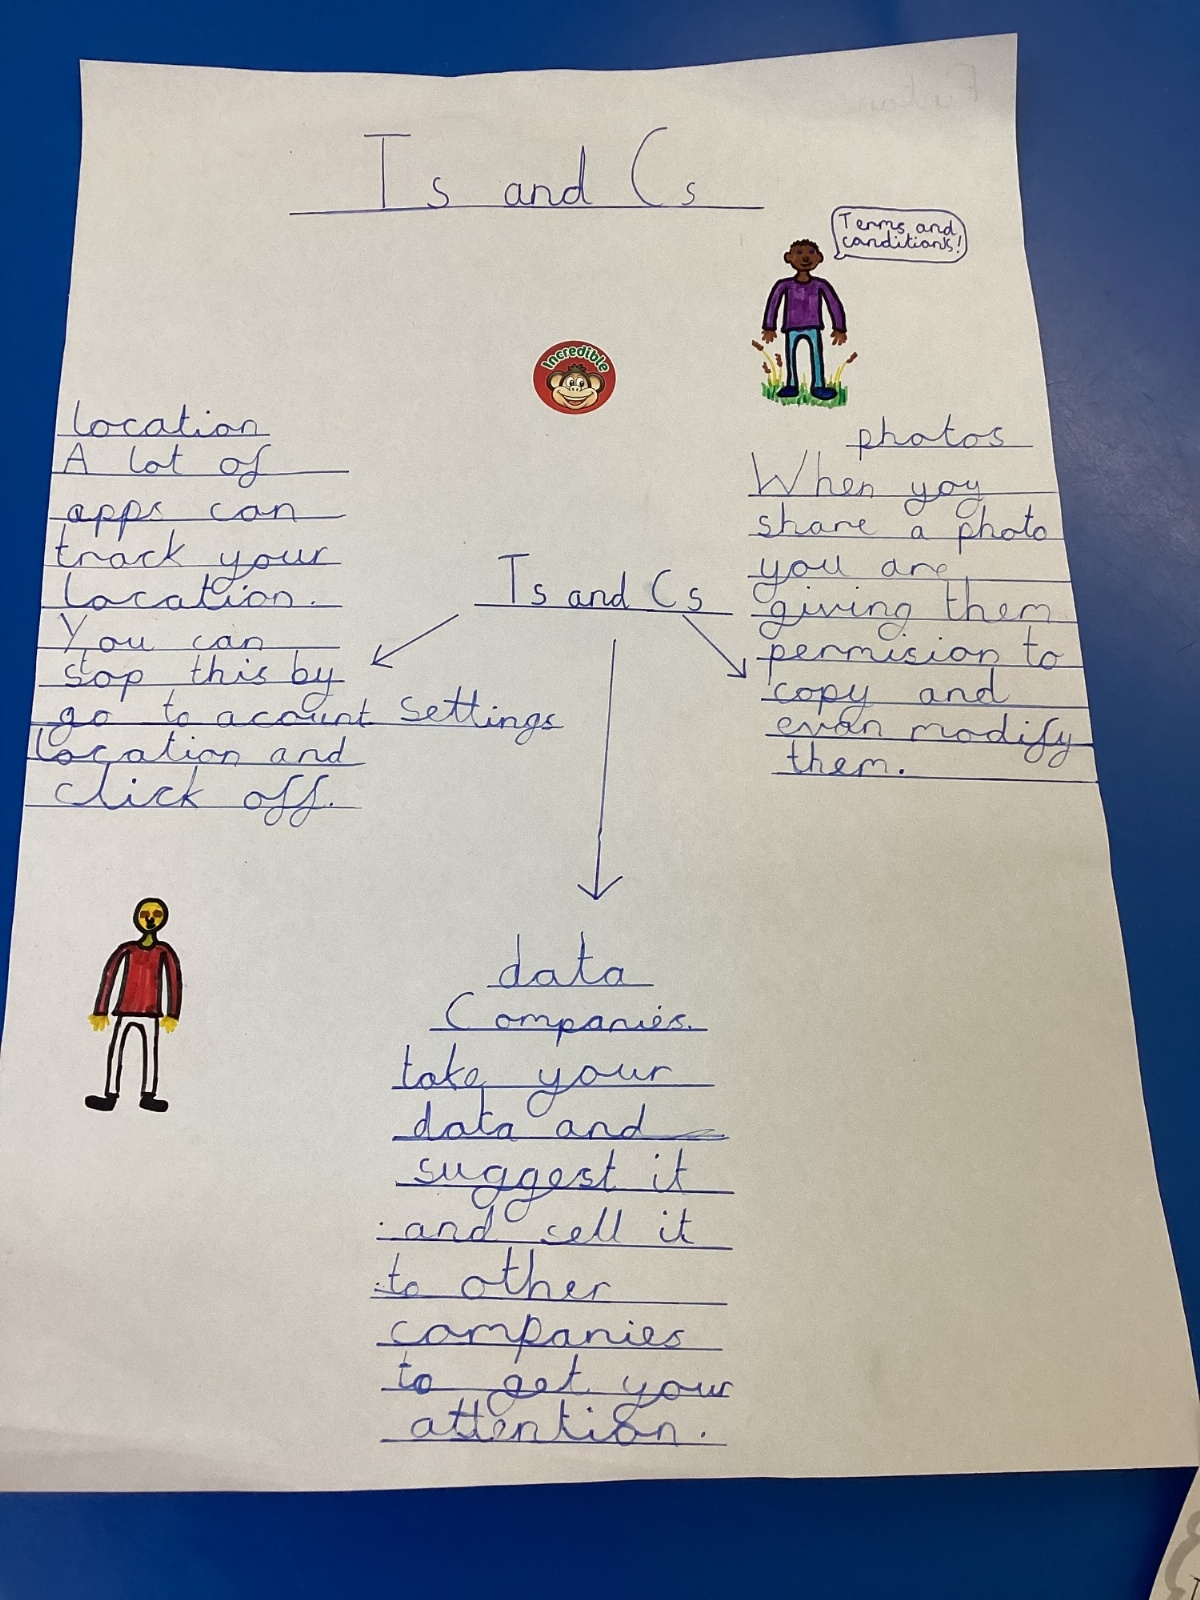 Ts and Cs
Terms and
conditions!
Incredible
location
A lot of
apps can
track your
location.
You can
stop this by
go to acount settings
location and
click off.
Ts and Cs
photos
When yoy
share a photo
you are
giving them
permision to
copy and
evan modify
them.
data
Companies.
take your
data and
suggest it
and sell it
to other
companies
to get your
attention.